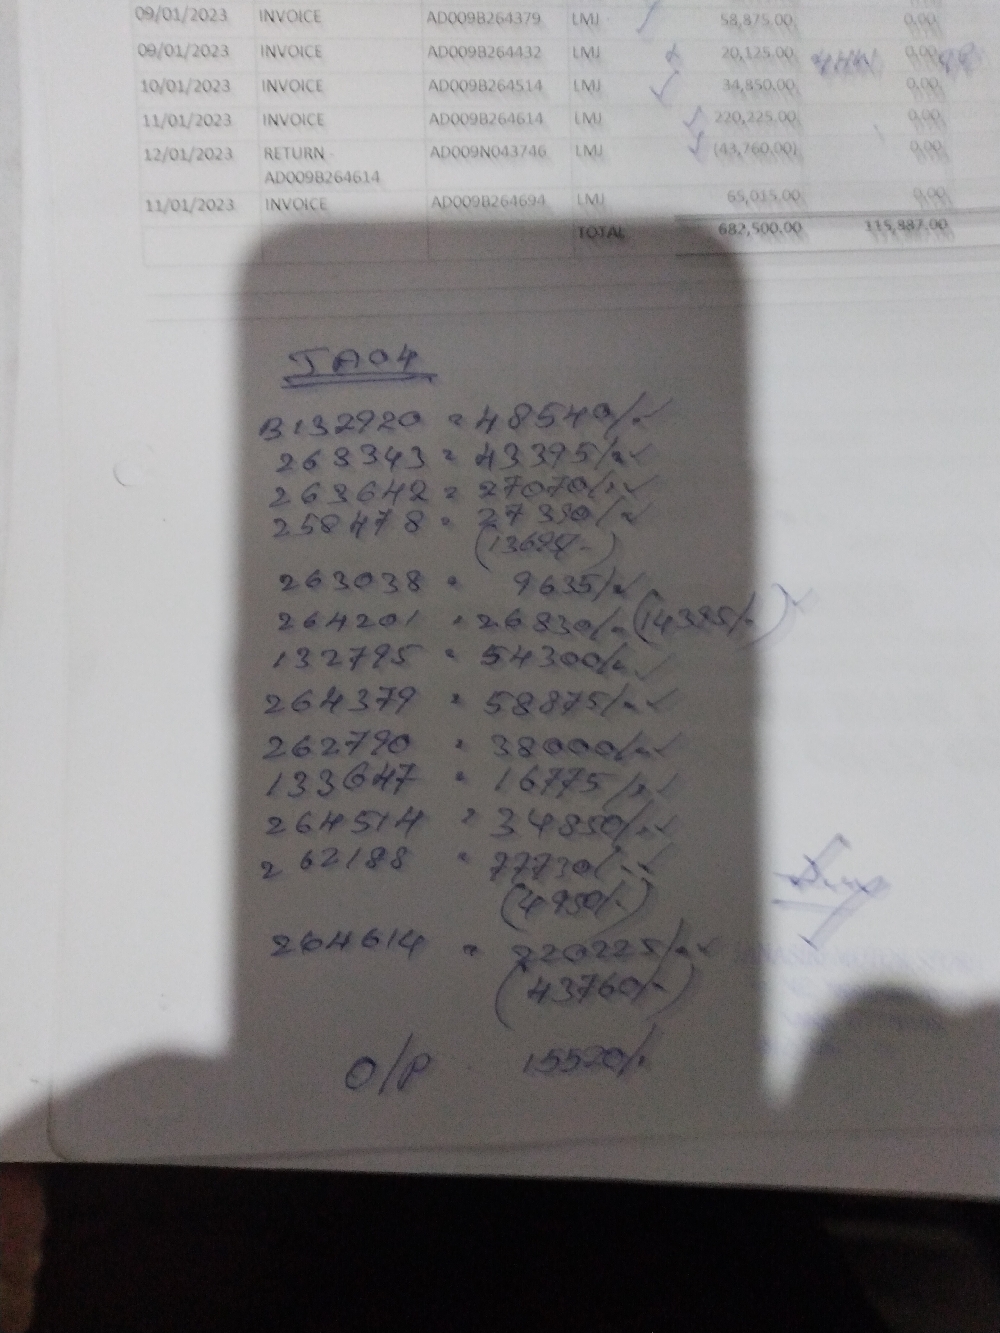 09/01/2023 INVOICE AD009B264379 LMJ 58,875.00 0.00
09/01/2023 INVOICE AD009B264432 LMJ 20,125.00 0.00
10/01/2023 INVOICE AD009B264514 LMJ 34,850.00 0.00
11/01/2023 INVOICE AD009B264614 LMJ 220,225.00 0.00
12/01/2023 RETURN - AD009N043746 LMJ (43,760.00) 0.00
AD009B264614
11/01/2023 INVOICE AD009B264694 LMJ 65,015.00 0.00
TOTAL 682,500.00 115,887.00
JA04
B132920 = 48540/-
263343 = 43395/-
263642 = 27070/-
258478 = 27390/-
263038 = 9635/-
264201 = 26830/- (14395/-)
132795 = 54300/-
264379 = 58875/-
262790 = 38000/-
133647 = 16775/-
264514 = 34850/-
262188 = 77730/-
(4950/-)
264614 = 220225/-
(43760/-)
O/P 15520/-